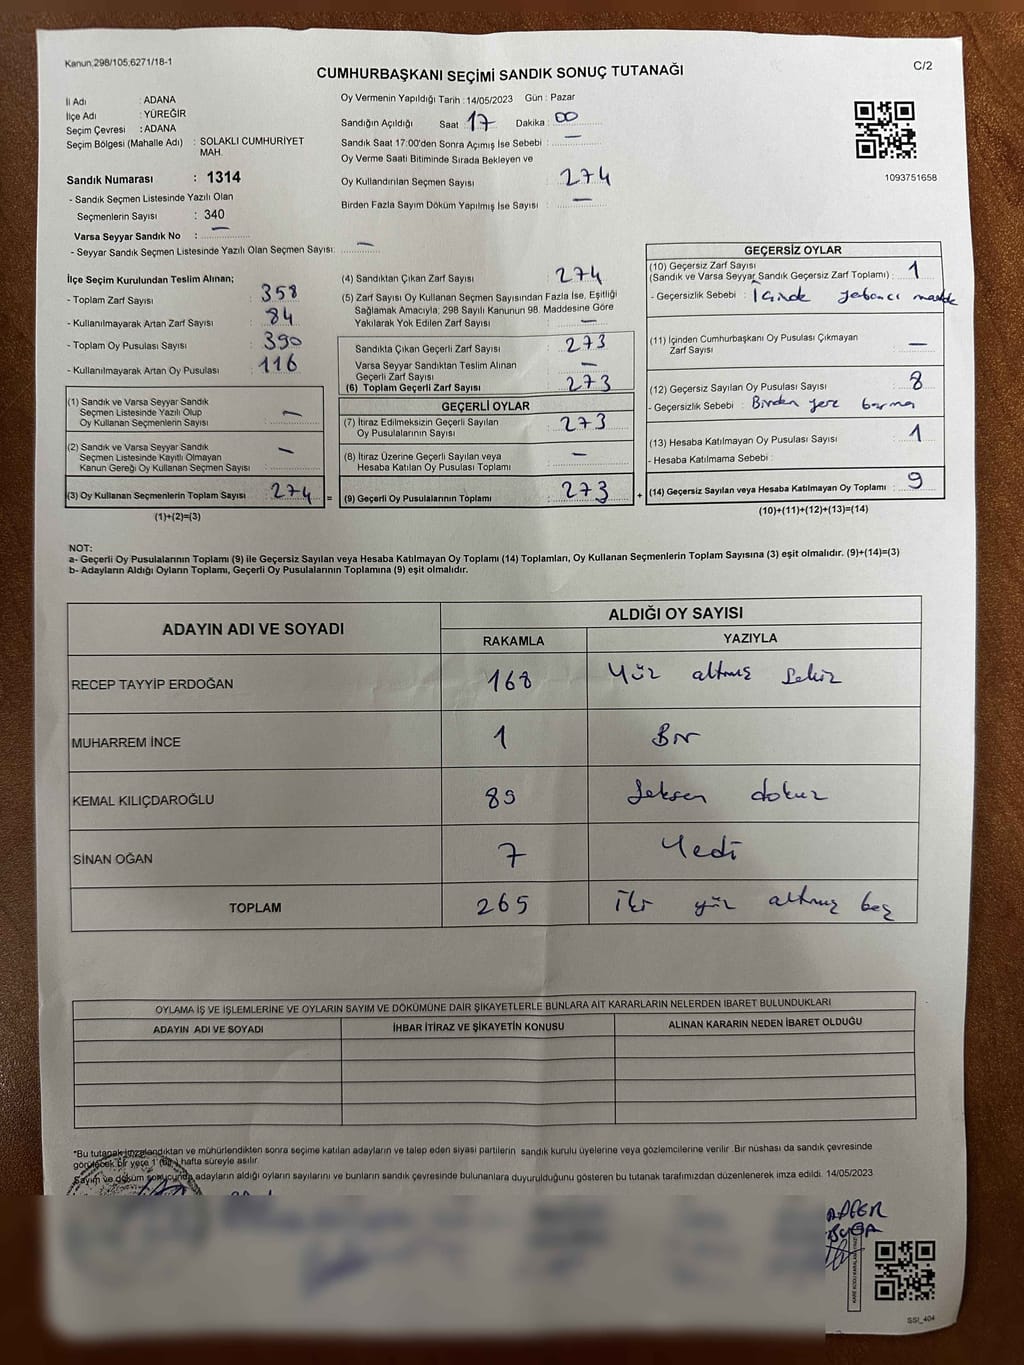 Kanun:298/105;6271/18-1
CUMHURBAŞKANI SEÇİMİ SANDIK SONUÇ TUTANAĞI
C/2
İl Adı : ADANA
İlçe Adı : YÜREĞİR
Seçim Çevresi : ADANA
Seçim Bölgesi (Mahalle Adı) : SOLAKLI CUMHURİYET
MAH.
Sandık Numarası : 1314
- Sandık Seçmen Listesinde Yazılı Olan
Seçmenlerin Sayısı : 340
Varsa Seyyar Sandık No : —
- Seyyar Sandık Seçmen Listesinde Yazılı Olan Seçmen Sayısı: —
Oy Vermenin Yapıldığı Tarih : 14/05/2023 Gün : Pazar
Sandığın Açıldığı Saat 17 Dakika : 00
Sandık Saat 17:00'den Sonra Açımış İse Sebebi : —
Oy Verme Saati Bitiminde Sırada Bekleyen ve
Oy Kullandırılan Seçmen Sayısı : 274
Birden Fazla Sayım Döküm Yapılmış İse Sayısı : —
1093751658
İlçe Seçim Kurulundan Teslim Alınan;
- Toplam Zarf Sayısı : 358
- Kullanılmayarak Artan Zarf Sayısı : 84
- Toplam Oy Pusulası Sayısı : 390
- Kullanılmayarak Artan Oy Pusulası : 116
(1) Sandık ve Varsa Seyyar Sandık
Seçmen Listesinde Yazılı Olup
Oy Kullanan Seçmenlerin Sayısı : —
(2) Sandık ve Varsa Seyyar Sandık
Seçmen Listesinde Kayıtlı Olmayan
Kanun Gereği Oy Kullanan Seçmen Sayısı : —
(3) Oy Kullanan Seçmenlerin Toplam Sayısı : 274 =
(1)+(2)=(3)
(4) Sandıktan Çıkan Zarf Sayısı : 274
(5) Zarf Sayısı Oy Kullanan Seçmen Sayısından Fazla İse, Eşitliği
Sağlamak Amacıyla; 298 Sayılı Kanunun 98. Maddesine Göre
Yakılarak Yok Edilen Zarf Sayısı : —
Sandıkta Çıkan Geçerli Zarf Sayısı : 273
Varsa Seyyar Sandıktan Teslim Alınan
Geçerli Zarf Sayısı : —
(6) Toplam Geçerli Zarf Sayısı : 273
GEÇERLİ OYLAR
(7) İtiraz Edilmeksizin Geçerli Sayılan
Oy Pusulalarının Sayısı : 273
(8) İtiraz Üzerine Geçerli Sayılan veya
Hesaba Katılan Oy Pusulası Toplamı : —
(9) Geçerli Oy Pusulalarının Toplamı : 273 +
GEÇERSİZ OYLAR
(10) Geçersiz Zarf Sayısı
(Sandık ve Varsa Seyyar Sandık Geçersiz Zarf Toplamı) : 1
- Geçersizlik Sebebi : İçinde yabancı madde
(11) İçinden Cumhurbaşkanı Oy Pusulası Çıkmayan
Zarf Sayısı : —
(12) Geçersiz Sayılan Oy Pusulası Sayısı : 8
- Geçersizlik Sebebi : Birden yere basma
(13) Hesaba Katılmayan Oy Pusulası Sayısı : 1
- Hesaba Katılmama Sebebi :
(14) Geçersiz Sayılan veya Hesaba Katılmayan Oy Toplamı : 9
(10)+(11)+(12)+(13)=(14)
NOT:
a- Geçerli Oy Pusulalarının Toplamı (9) ile Geçersiz Sayılan veya Hesaba Katılmayan Oy Toplamı (14) Toplamları, Oy Kullanan Seçmenlerin Toplam Sayısına (3) eşit olmalıdır. (9)+(14)=(3)
b- Adayların Aldığı Oyların Toplamı, Geçerli Oy Pusulalarının Toplamına (9) eşit olmalıdır.
ADAYIN ADI VE SOYADI
ALDIĞI OY SAYISI
RAKAMLA YAZIYLA
RECEP TAYYİP ERDOĞAN 168 Yüz altmış sekiz
MUHARREM İNCE 1 Bir
KEMAL KILIÇDAROĞLU 89 Seksen dokuz
SİNAN OĞAN 7 Yedi
TOPLAM 265 İki yüz altmış beş
OYLAMA İŞ VE İŞLEMLERİNE VE OYLARIN SAYIM VE DÖKÜMÜNE DAİR ŞİKAYETLERLE BUNLARA AİT KARARLARIN NELERDEN İBARET BULUNDUKLARI
ADAYIN ADI VE SOYADI İHBAR İTİRAZ VE ŞİKAYETİN KONUSU ALINAN KARARIN NEDEN İBARET OLDUĞU
*Bu tutanak imzalandıktan ve mühürlendikten sonra seçime katılan adayların ve talep eden siyasi partilerin sandık kurulu üyelerine veya gözlemcilerine verilir. Bir nüshası da sandık çevresinde
görülecek bir yere 1 (bir) hafta süreyle asılır.
Sayım ve döküm sonucunda adayların aldığı oyların sayılarını ve bunların sandık çevresinde bulunanlara duyurulduğunu gösteren bu tutanak tarafımızdan düzenlenerek imza edildi. 14/05/2023
SSI_404